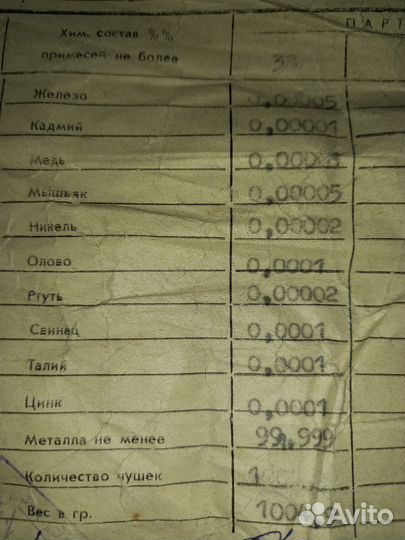 ПАРТ
Хим. состав %%
примесей не более 38
Железо 0,00005
Кадмий 0,00001
Медь
Мышьяк 0,00005
Никель 0,00002
Олово 0,0001
Ртуть 0,00002
Свинец 0,0001
Талий 0,0001
Цинк 0,0001
Металла не менее 99,999
Количество чушек
Вес в гр.
Avito